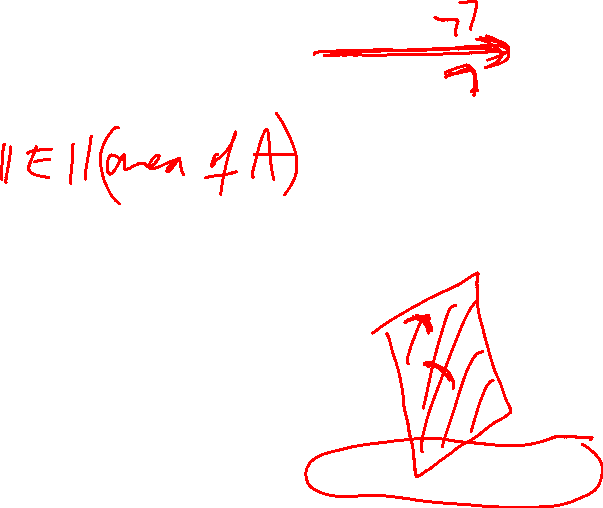 ||E||(area of A)